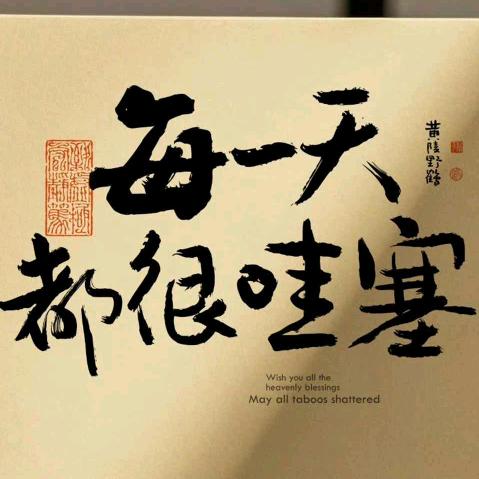 每一天
都很哇塞
黄陵野鹤
Wish you all the
heavenly blessings
May all taboos shattered